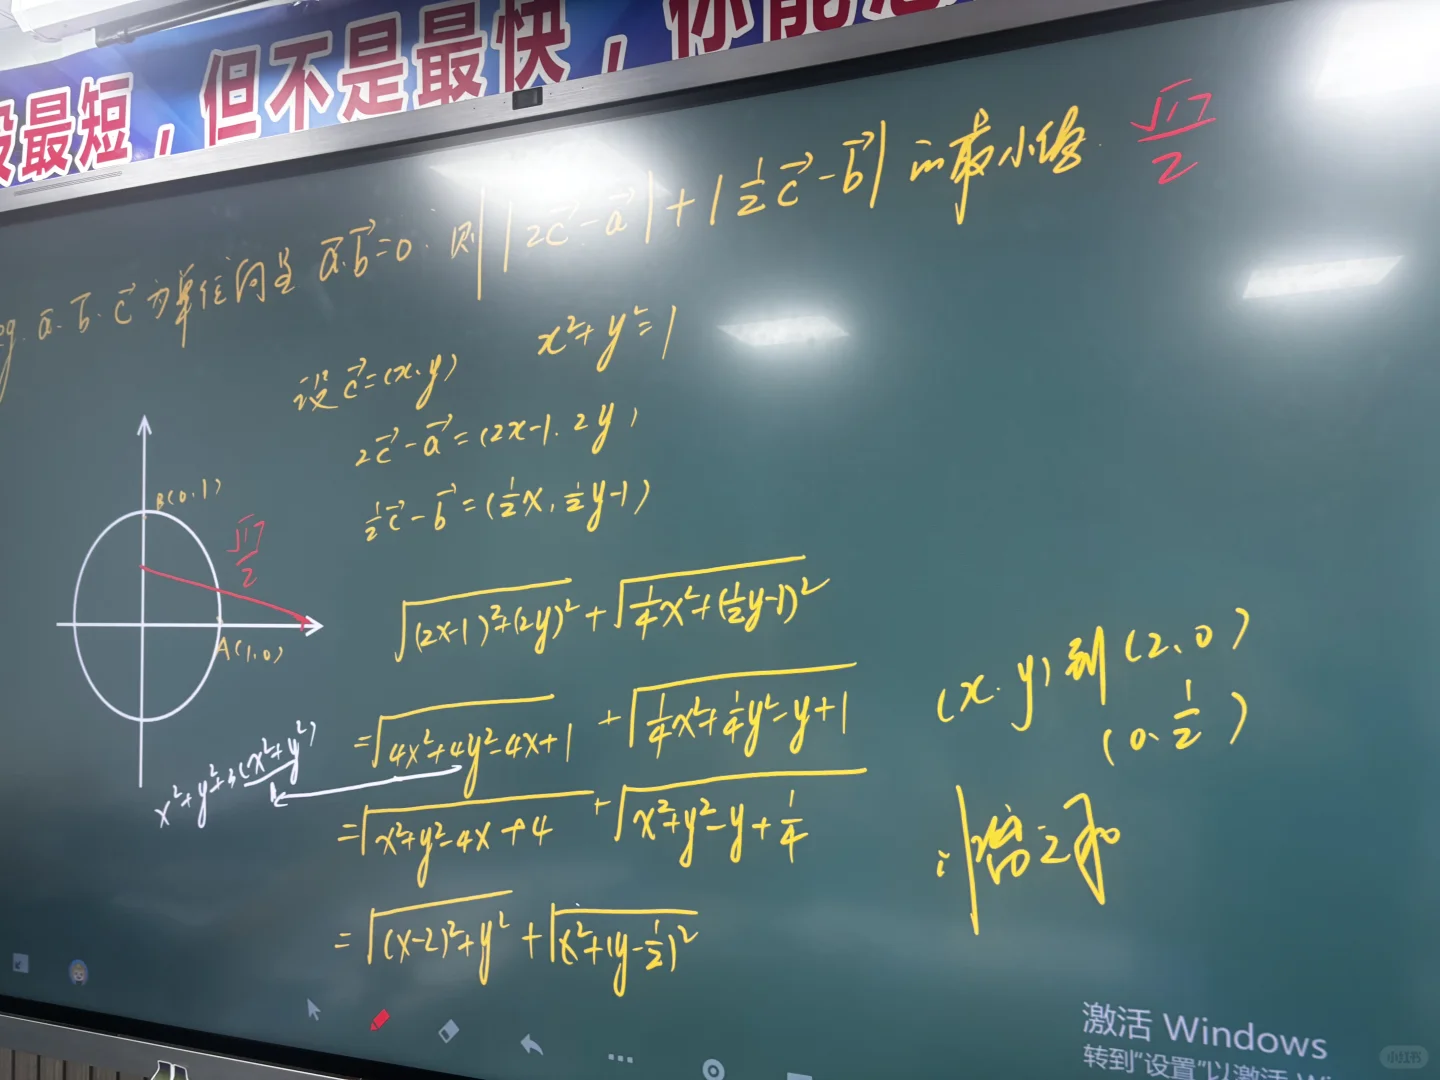 最短，但不是最快，你能
eg. a⃗. b⃗. c⃗ 为单位向量 a⃗.b⃗=0. 则 |2c⃗-a⃗|+|½c⃗-b⃗| 的最小值. √17/2
设 c⃗=(x.y) x²+y²=1
2c⃗-a⃗=(2x-1.2y)
½c⃗-b⃗=(½x,½y-1)
B(0.1)
√17/2
A(1,0)
√((2x-1)²+(2y)²)+√(¼x²+(½y-1)²)
=√(4x²+4y²-4x+1)+√(¼x²+¼y²-y+1)
x²+y²+3(x²+y²)
=√(x²+y²-4x+4)+√(x²+y²-y+¼)
=√((x-2)²+y²)+√(x²+(y-½)²)
(x.y)到(2、0)
(0.½)
距离之和
激活 Windows
转到"设置"以激活 Wi
小红书